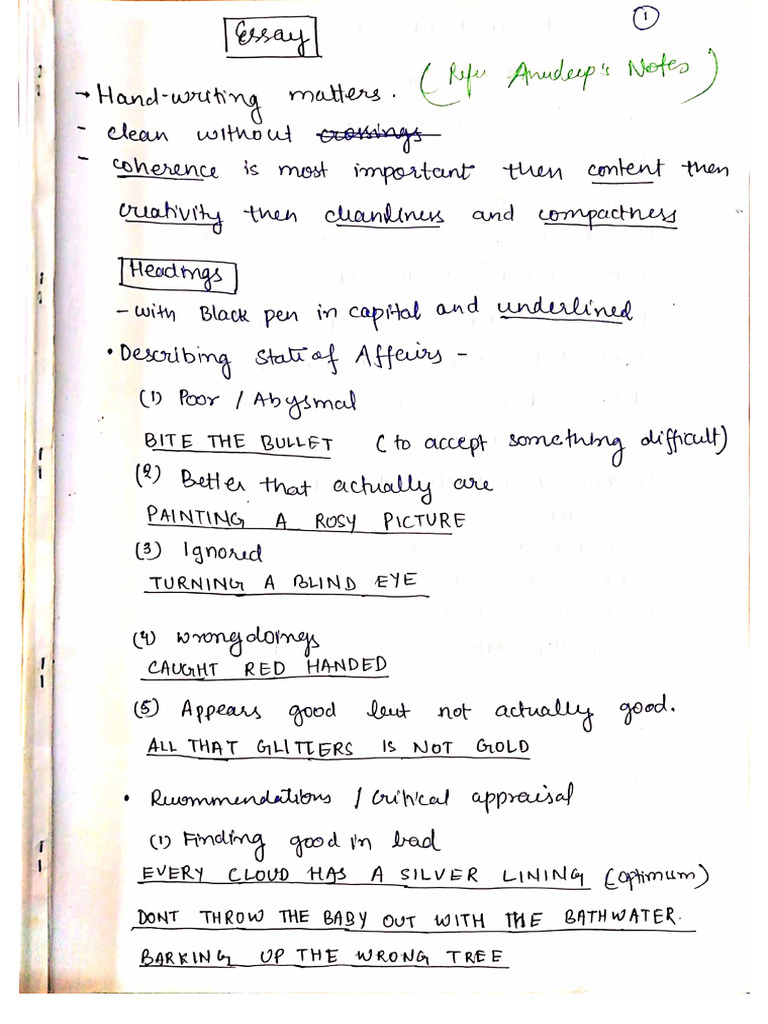 1
Essay
(Refer Anudeep's Notes)
→ Hand-writing matters.
- clean without crossings
- coherence is most important then content then
creativity then cleanliness and compactness
Headings
- with Black pen in capital and underlined
• Describing State of Affairs -
(1) Poor / Abysmal
BITE THE BULLET (to accept something difficult)
(2) Better that actually are
PAINTING A ROSY PICTURE
(3) Ignored
TURNING A BLIND EYE
(4) Wrongdoings
CAUGHT RED HANDED
(5) Appears good but not actually good.
ALL THAT GLITTERS IS NOT GOLD
• Recommendations / Critical appraisal
(1) Finding good in bad
EVERY CLOUD HAS A SILVER LINING (optimum)
DONT THROW THE BABY OUT WITH THE BATHWATER.
BARKING UP THE WRONG TREE